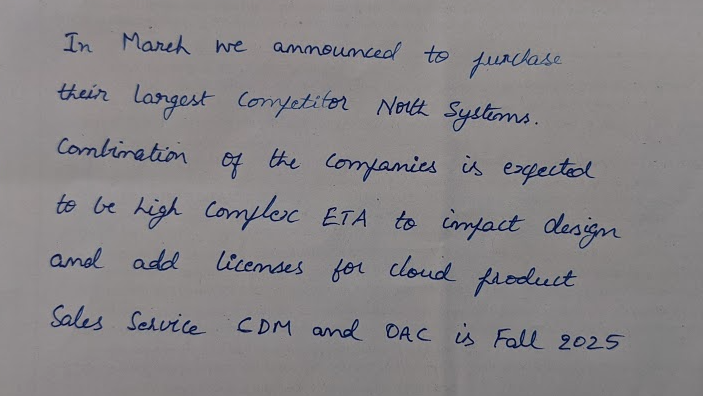 In March we announced to purchase
their largest Competitor North Systems.
Combination of the Companies is expected
to be high Complex ETA to impact design
and add licenses for cloud product
Sales Service CDM and OAC is Fall 2025